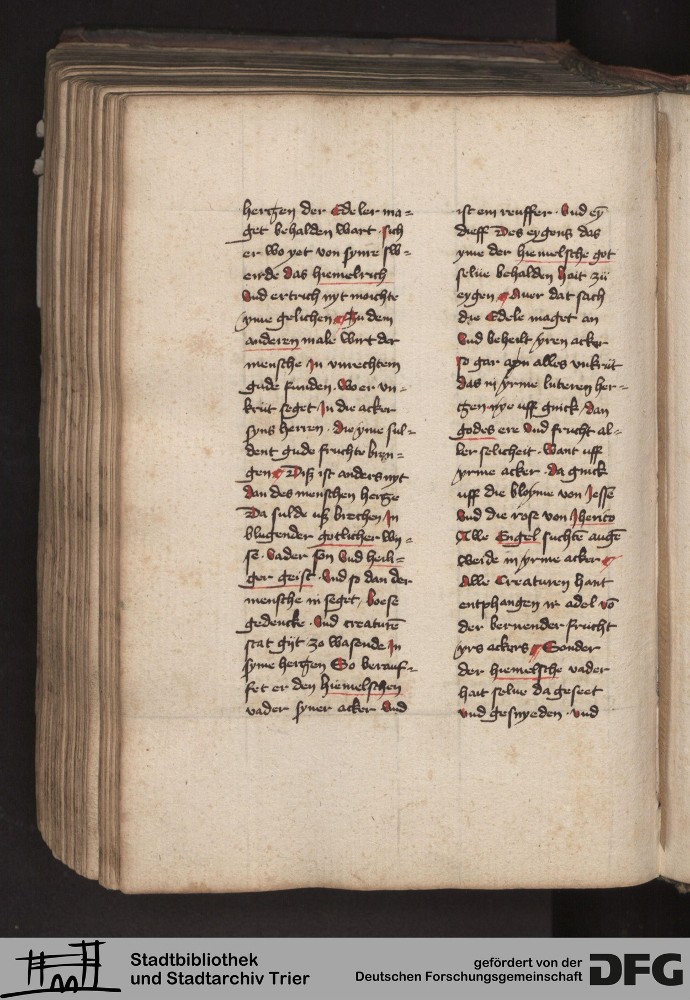 hertzen der Edeler ma=
get behalden wart · sich
er wo yet von synre sw=
erde das hiemelrich
Vnd ertrich nyt moichte
yme gelichen Zu dem
anderen male wirt der
mensche In vnrechtem
gude funden · wo er vn=
krut seget In die acker
syns herren · Die yme sul=
dent gude fruchte bren=
gen Diß ist anders nyt
dan des menschen hertze
Da sulde uß brechen In
blugender gotlicher wy=
se · Vader son Vnd heili=
ger geist · Vnd so dan der
mensche in seget / boese
gedencke · Vnd creaturē
stat gijt zo wasende In
syme hertzen So berauf=
fet er den hiemelschen
vader syner acker Vnd
ist ein reuffer · Vnd eȳ
dieff Des eygens das
yme der hiemelsche got
selue behalden hait zü
eygen Auer dat sach
die Edele maget an
Vnd beheilt yren acker
so gar ayn alles vnkrüt
das in yrme luteren her=
tzen nye uff ginck / dan
godes ere Vnd frucht al=
ler selicheit · Want uff
yrme acker · da ginck
uff die bloyme von Jesse
Vnd die rose von Jherico
Alle Engel suchtē augē
weide in yrme acker
Alle Creaturen hant
entphangen ir adel vō
der bernender frucht
yrs ackers Sonder
der hiemelsche vader
hait selue da geseet
vnd gesnyeden · vnd
Stadtbibliothek
und Stadtarchiv Trier
gefördert von der
Deutschen Forschungsgemeinschaft
DFG